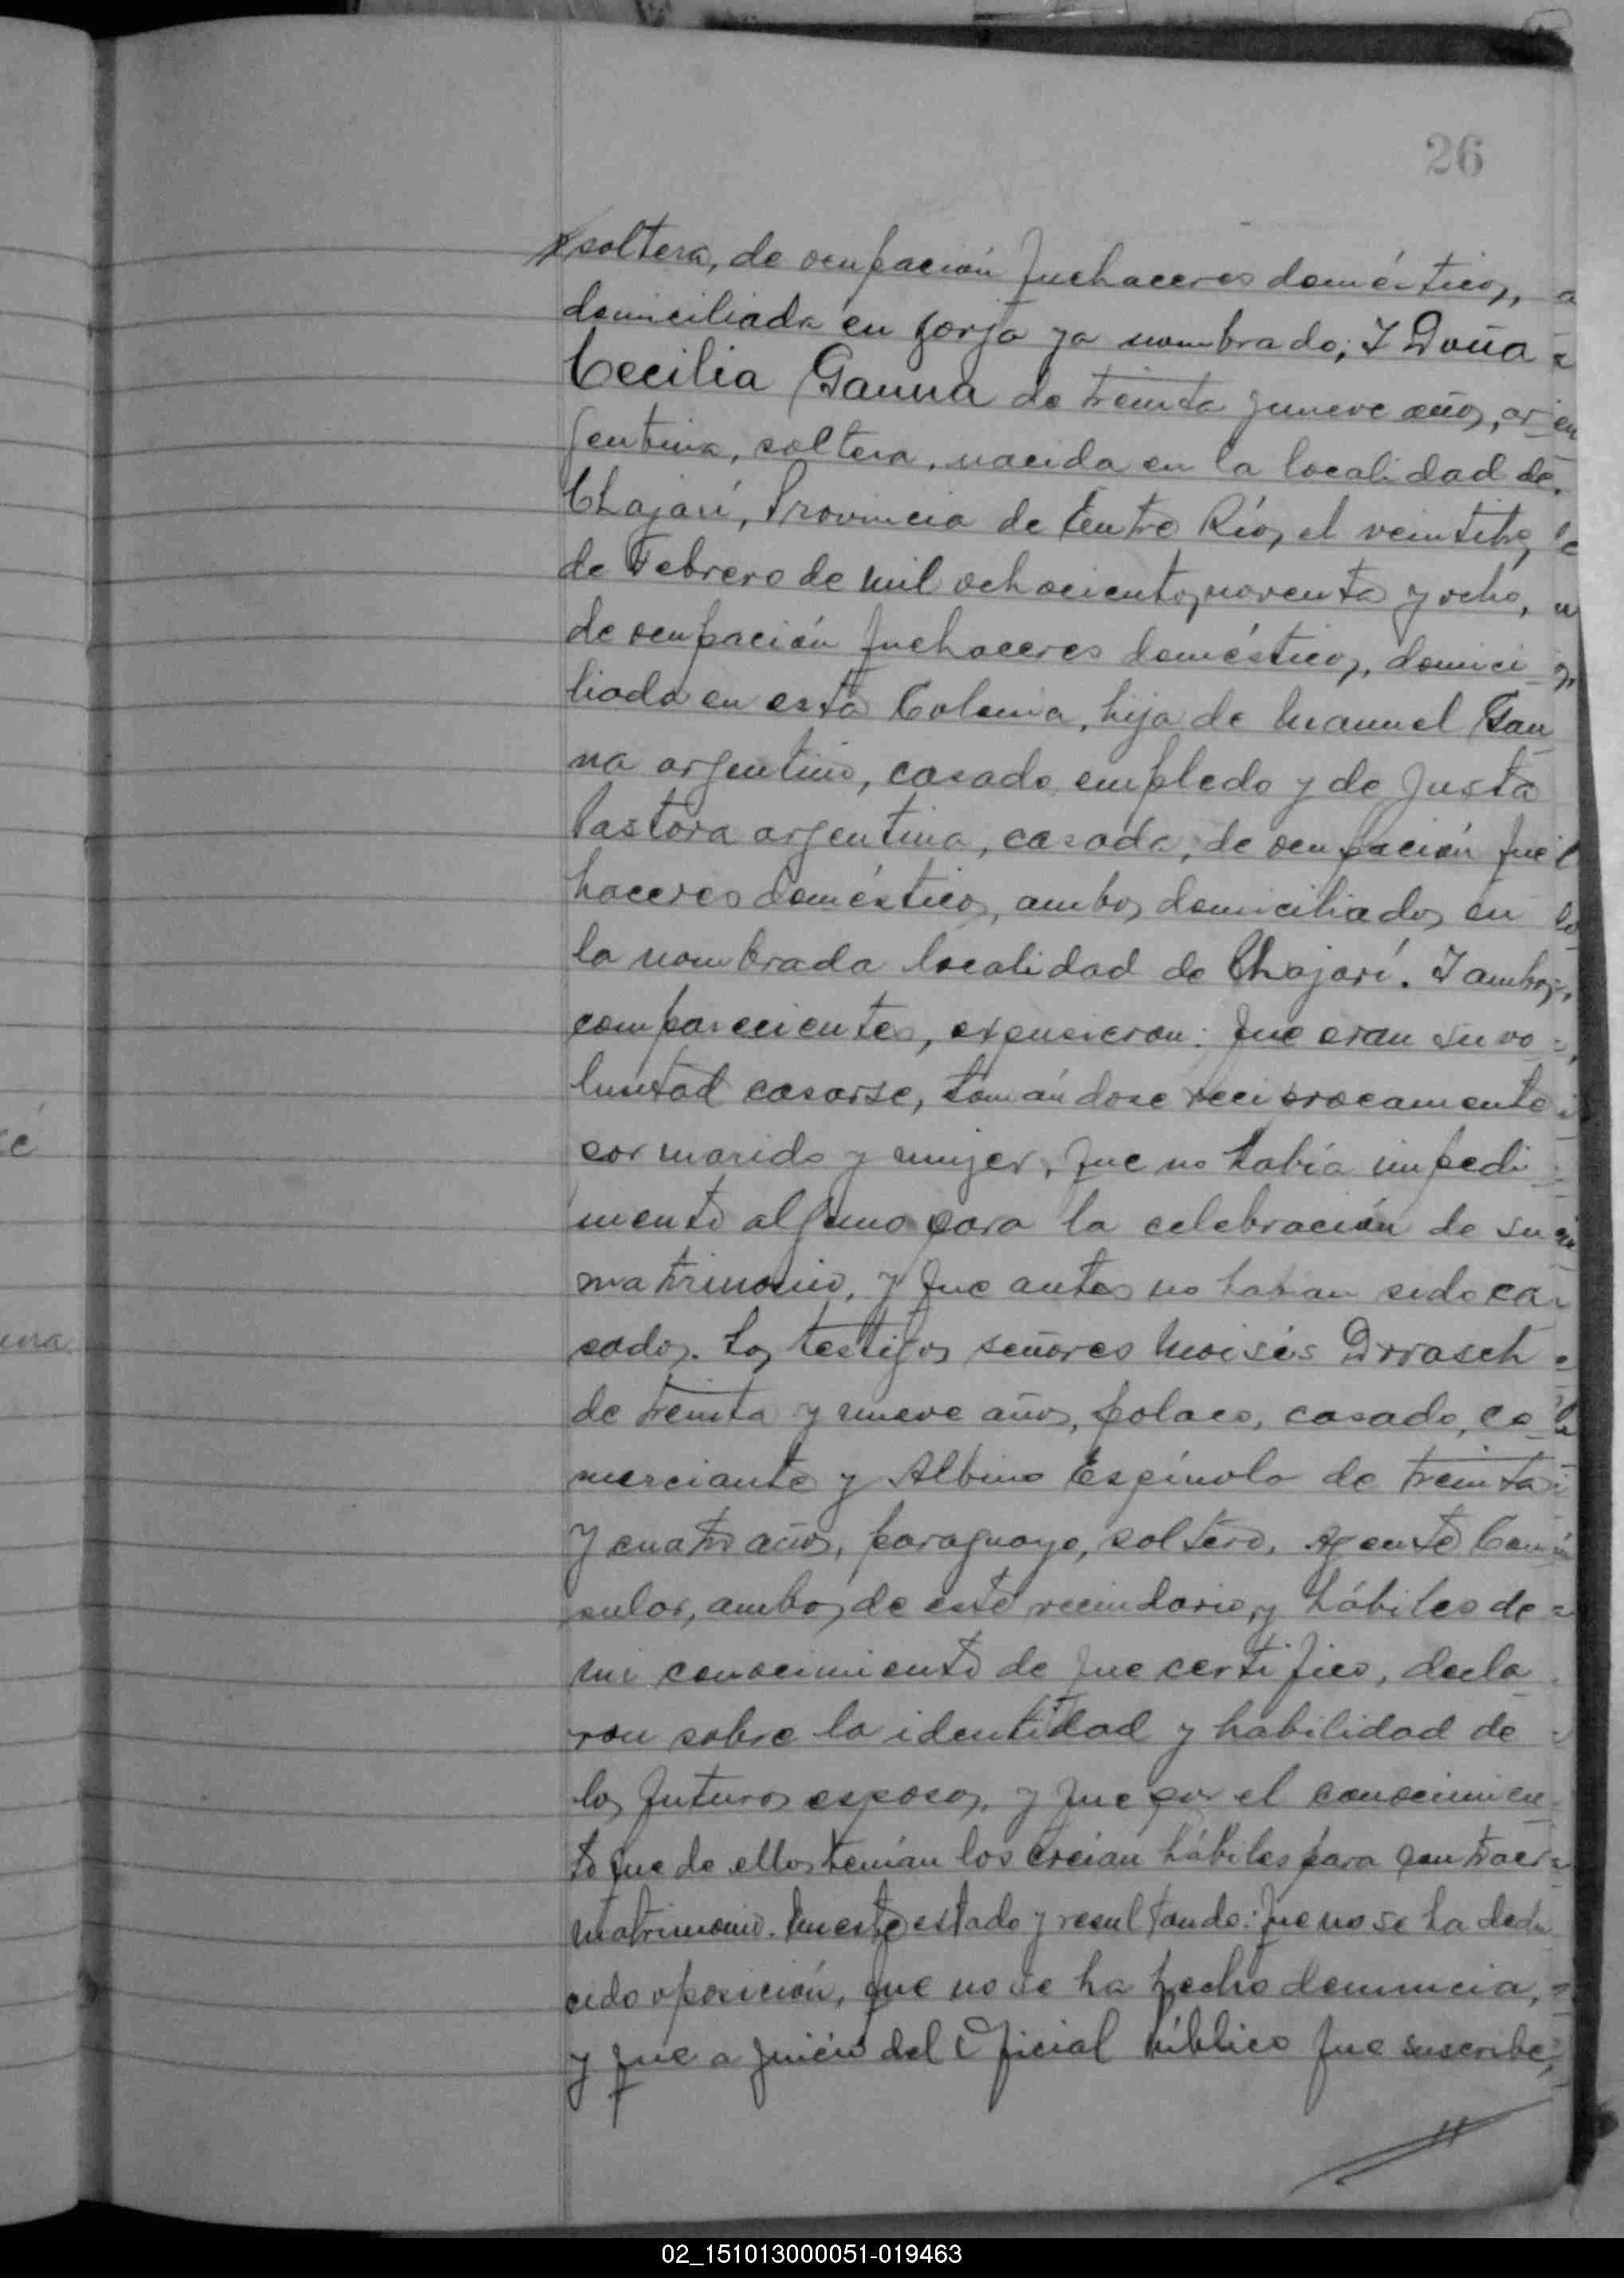 26
soltera, de ocupación quehaceres domésticos,
domiciliada en Jorja ya nombrado; Y Doña
Cecilia Gauna de treinta y nueve años, ar
gentina, soltera, nacida en la localidad de
Chajarí, Provincia de Entre Ríos el veintitres
de Febrero de mil ochocientos noventa y ocho,
de ocupación quehaceres domésticos, domici
liada en esta Colonia, hija de Manuel Gau
na argentino, casado empledo y de Justa
Pastora argentina, casada, de ocupación que
haceres domésticos, ambos domiciliados en
la nombrada localidad de Chajarí. Y ambos
comparecientes, expusieron: que eran su vo
luntad casarse, tomándose reciprocamente
por marido y mujer, que no había impedi
mento alguno para la celebración de su
matrimonio, y que antes no habian sido ca
sados. Los testigos señores Moisés Drrasch
de treinta y nueve años, polaco, casado, co
merciante y Albino Espínola de treinta
y cuatro años, paraguayo, soltero, Agente Con
sular, ambos de este vecindario, y hábiles de
mi conocimiento de que certifico, decla
ron sobre la identidad y habilidad de
los futuros esposos, y que por el conocimien
to que de ellos tenían los creían hábiles para contraer
matrimonio. En este estado y resultando: que no se ha dedu
cido oposición, que no se ha hecho denuncia,
y que a juicio del Oficial Público que suscribe,
02_151013000051-019463